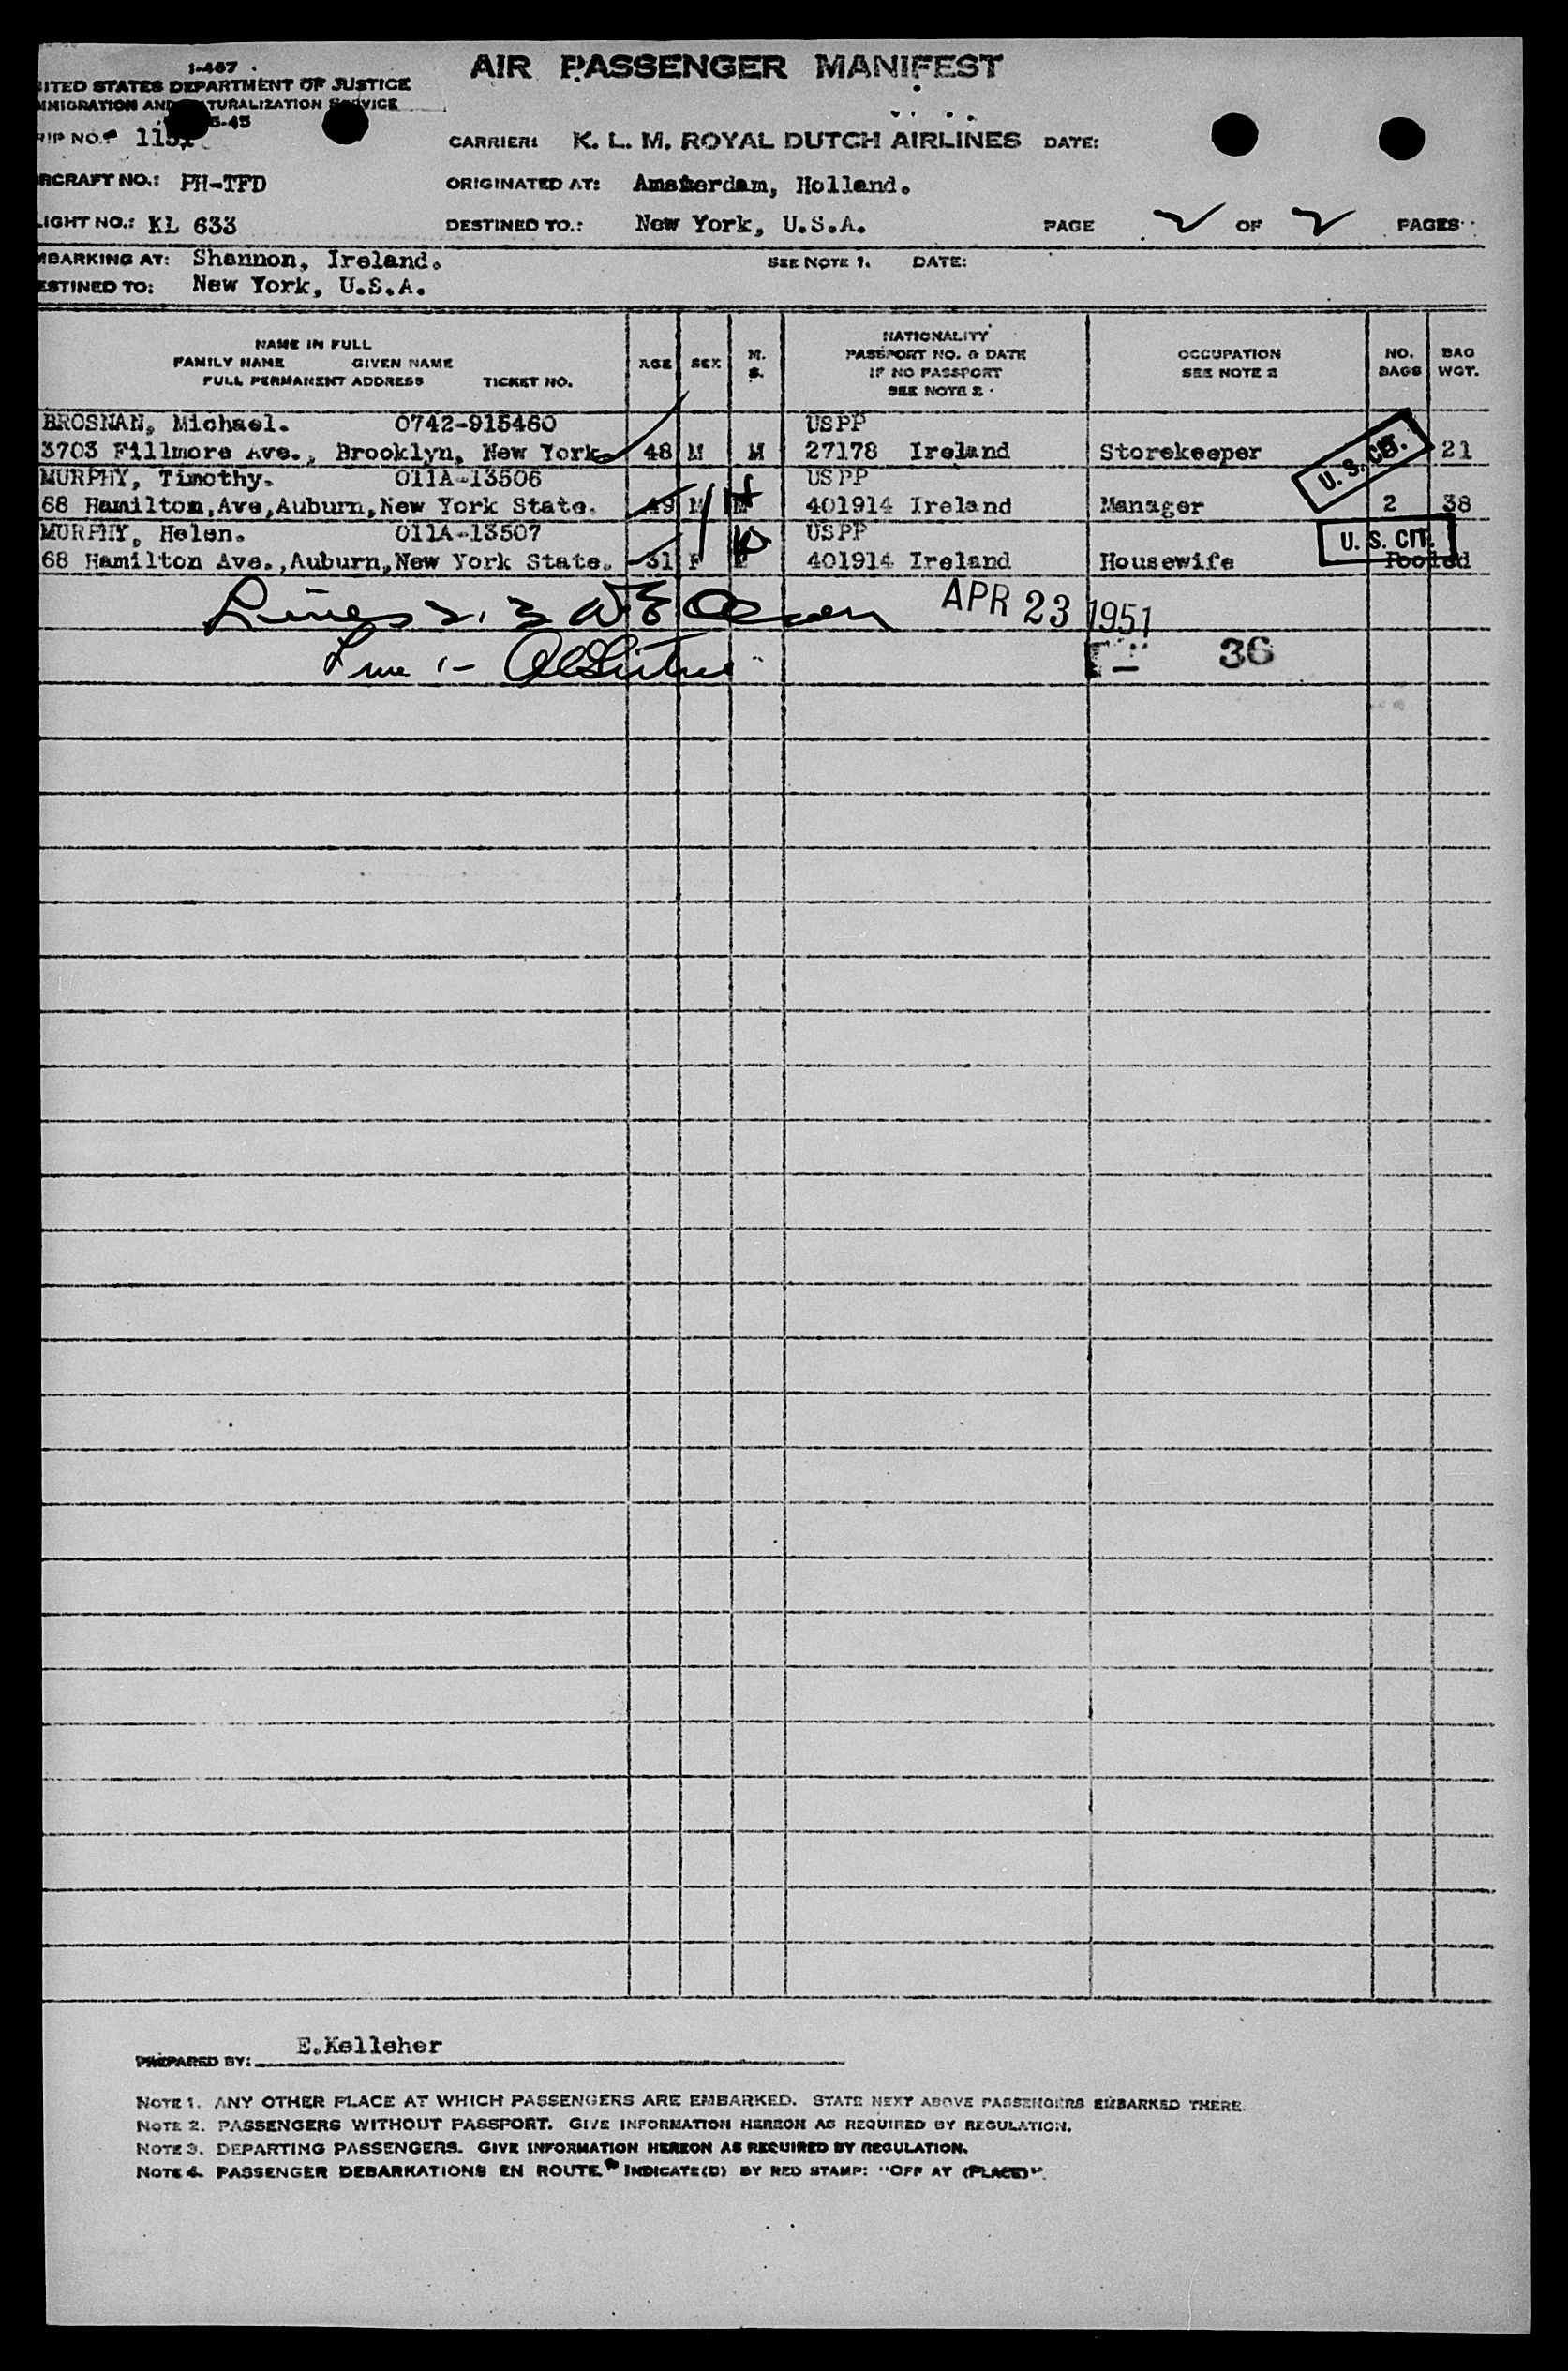 1-467
ITED STATES DEPARTMENT OF JUSTICE
MMIGRATION AND NATURALIZATION SERVICE
5-45
AIR PASSENGER MANIFEST
RIP NO. 1151
CARRIER: K. L. M. ROYAL DUTCH AIRLINES DATE:
RCRAFT NO.: PH-TFD ORIGINATED AT: Amsterdam, Holland.
LIGHT NO.: KL 633 DESTINED TO.: New York, U.S.A. PAGE 2 OF 2 PAGES
MBARKING AT: Shannon, Ireland. SEE NOTE 1. DATE:
ESTINED TO: New York, U.S.A.
NAME IN FULL
FAMILY NAME GIVEN NAME
FULL PERMANENT ADDRESS TICKET NO.
AGE
SEX
M.
S.
NATIONALITY
PASSPORT NO. & DATE
IF NO PASSPORT
SEE NOTE 2
OCCUPATION
SEE NOTE 2
NO.
BAGS
BAG
WGT.
BROSNAN, Michael. 0742-915460 USPP
3703 Fillmore Ave., Brooklyn, New York 48 M M 27178 Ireland Storekeeper U. S. CIT. 21
MURPHY, Timothy. 011A-13506 USPP
68 Hamilton,Ave,Auburn,New York State. 49 M M 401914 Ireland Manager 2 38
MURPHY, Helen. 011A-13507 USPP U. S. CIT.
68 Hamilton Ave.,Auburn,New York State. 31 F 401914 Ireland Housewife Pooled
Lines 2, 3
APR 23 1951
Line 1-
36
PREPARED BY: E.Kelleher
NOTE 1. ANY OTHER PLACE AT WHICH PASSENGERS ARE EMBARKED. STATE NEXT ABOVE PASSENGERS EMBARKED THERE.
NOTE 2. PASSENGERS WITHOUT PASSPORT. GIVE INFORMATION HEREON AS REQUIRED BY REGULATION.
NOTE 3. DEPARTING PASSENGERS. GIVE INFORMATION HEREON AS REQUIRED BY REGULATION.
NOTE 4. PASSENGER DEBARKATIONS EN ROUTE. INDICATE(D) BY RED STAMP: "OFF AT (PLACE)".